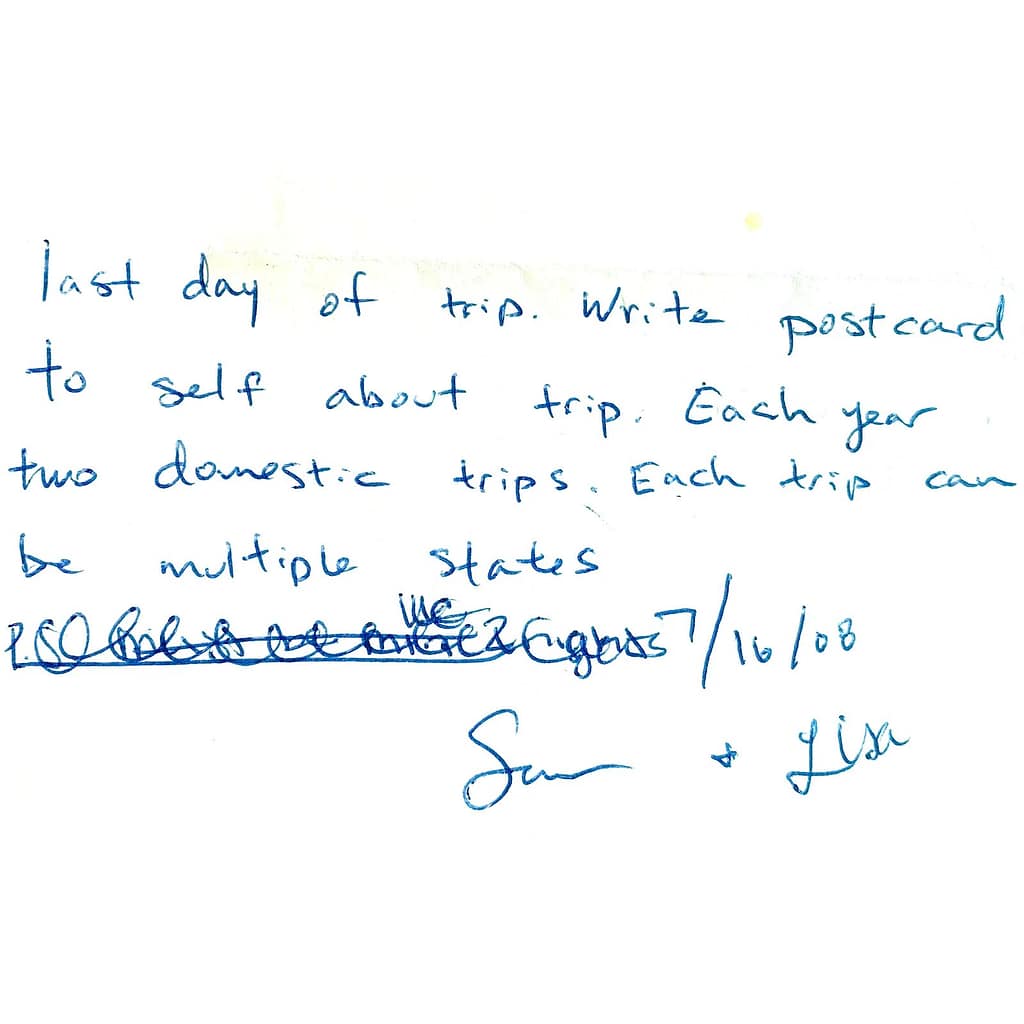 last day of trip. Write postcard
to self about trip. Each year
two domestic trips. Each trip can
be multiple states
7/16/08
Sam + Lisa